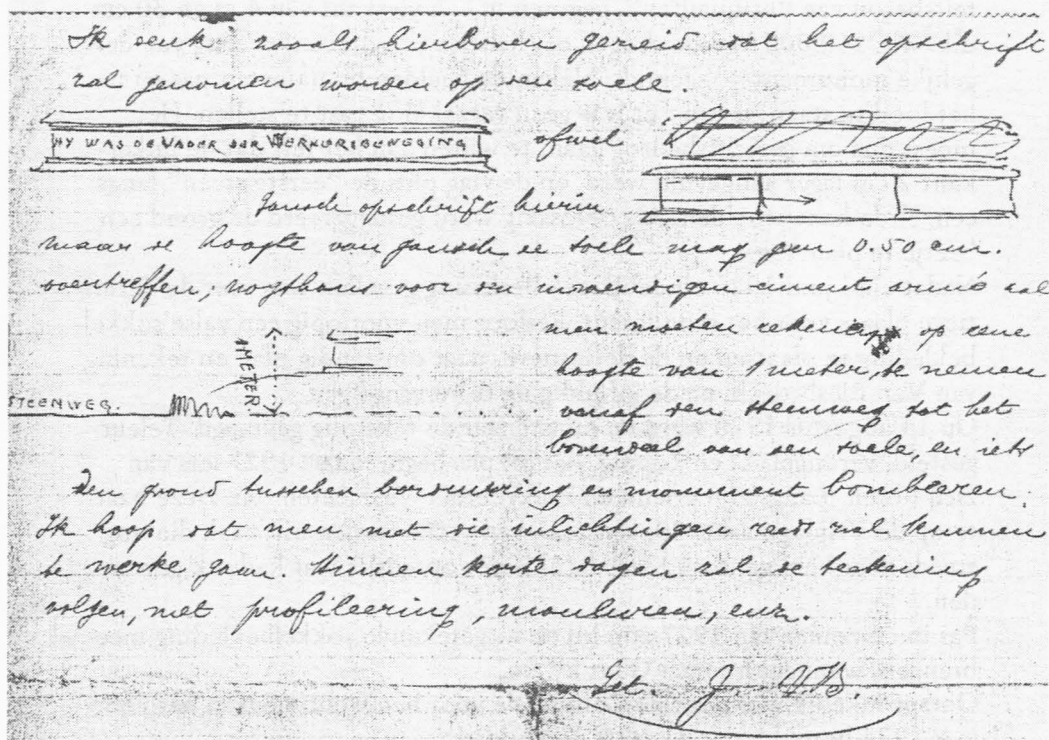 Ik denk zooals hierboven gezeid dat het opschrift
zal genomen worden op den socle.
HY WAS DE VADER DER WERKERSBEWEGING
ofwel
Gansch opschrift hierin
maar de hoogte van gansch de socle mag geen 0.50 cm.
overtreffen; nogthans voor den inwendigen ciment armé zal
men moeten rekenen op eene
hoogte van 1 meter, te nemen
vanaf den steenweg tot het
bovendeel van den socle, en iets
1 METER
STEENWEG.
Den grond tusschen borduuring en monument bombeeren
Ik hoop dat men met die inlichtingen reeds zal kunnen
te werke gaan. Binnen korte dagen zal de teekening
volgen, met profileering, mouluren, enz.
Get. J. V.B.